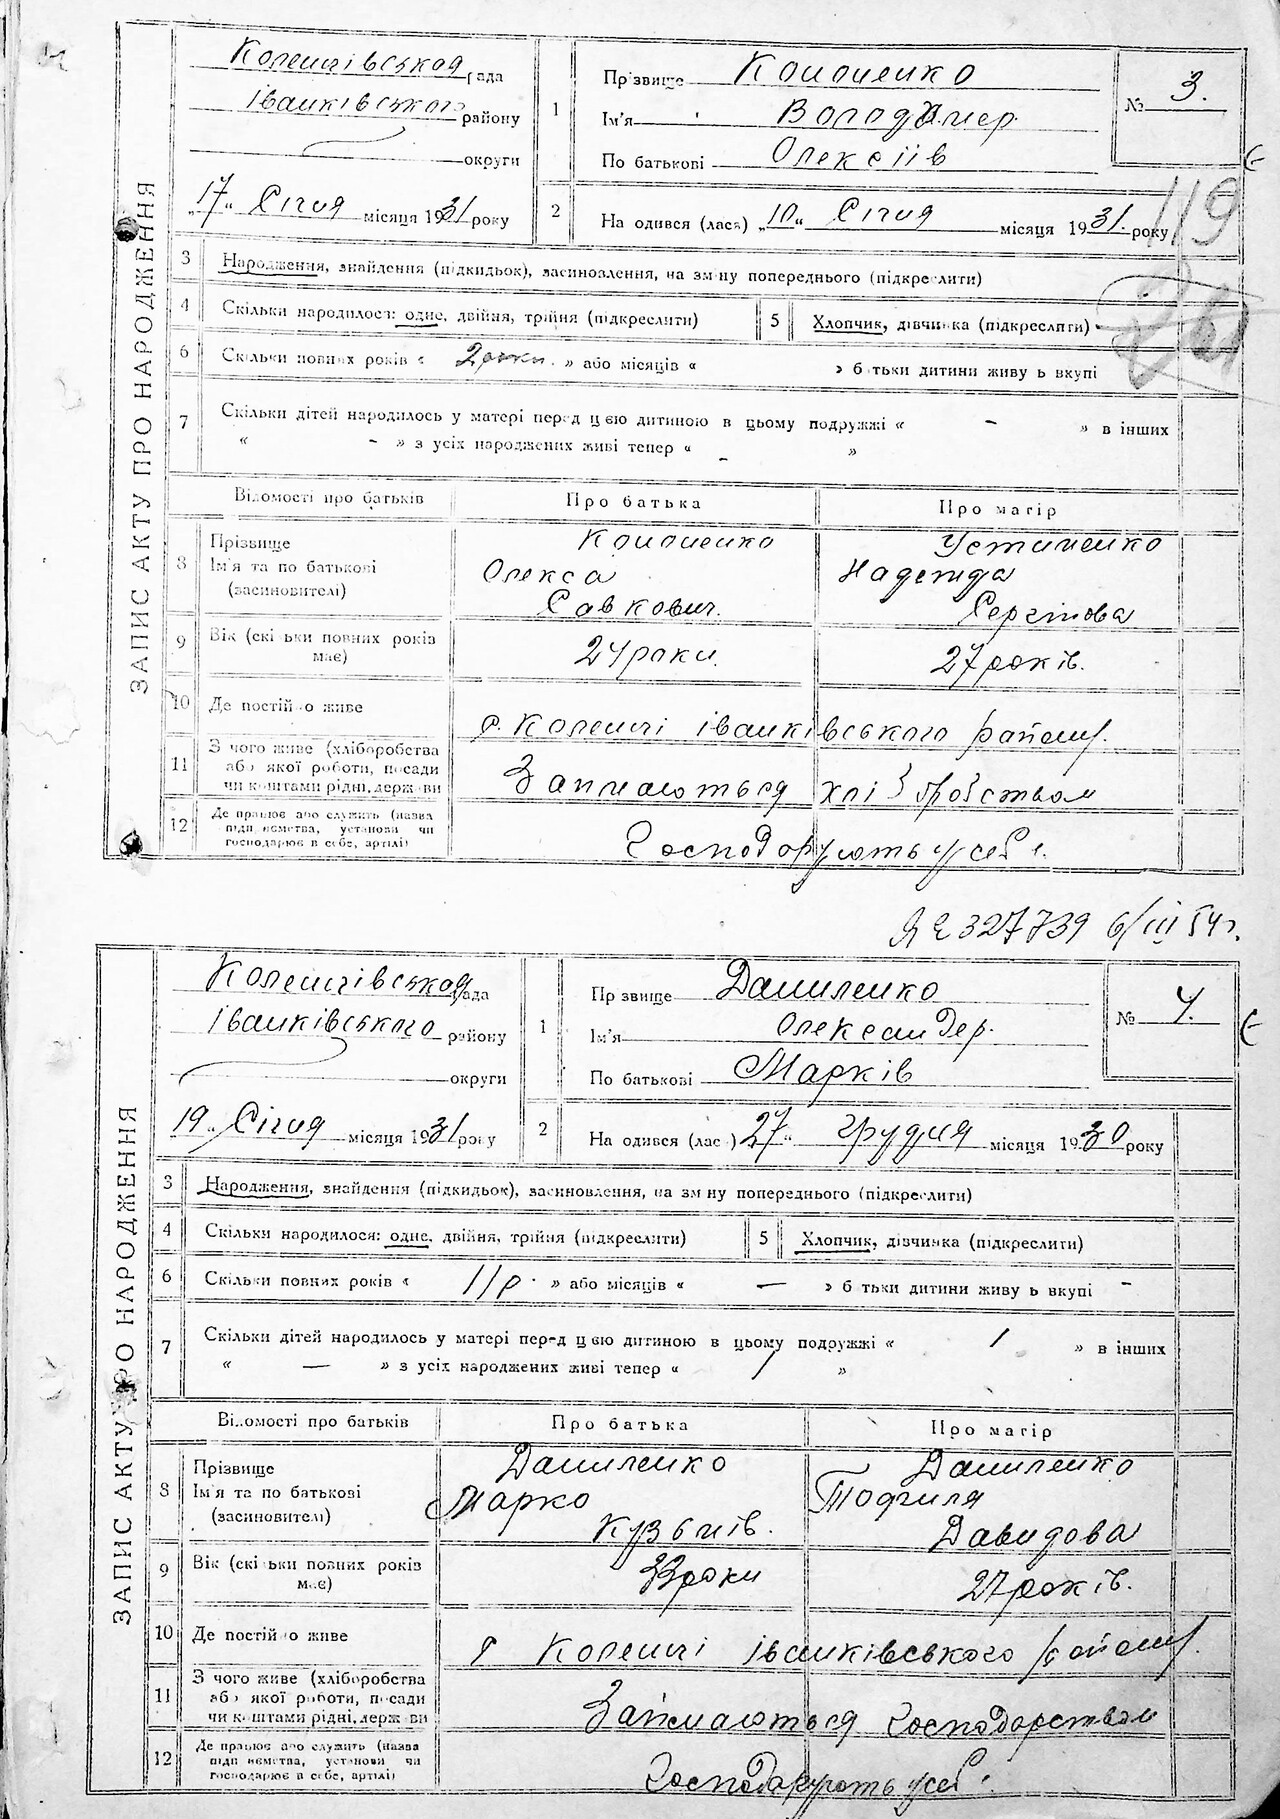 ЗАПИС АКТУ ПРО НАРОДЖЕННЯ
Коленцівська рада
Іванківського району
округи
„17" Січня місяця 1931 року
1
Прізвище Кононенко
Ім'я Володимер
По батькові Олексіїв
№ 3.
2
На одився (лась) „10" Січня місяця 1931. року
119
3 Народження, знайдення (підкидьок), засиновлення, на зміну попереднього (підкреслити)
4 Скільки народилося: одне, двійня, трійня (підкреслити)
5 Хлопчик, дівчинка (підкреслити)
6 Скільки повних років « 2 роки. » або місяців « » б тьки дитини живу ь вкупі
7 Скільки дітей народилось у матері перед цією дитиною в цьому подружжі « - » в інших
« - » з усіх народжених живі тепер « - »
Відомості про батьків Про батька Про матір
8 Прізвище Кононенко Устименко
Ім'я та по батькові Олекса Надежда
(засиновителі) Савкович. Сергіїова
9 Вік (скі ьки повних років має) 24 роки. 27 років.
10 Де постій о живе с. Коленці іванківського району.
11 З чого живе (хліборобства
або якої роботи, посади
чи коштами рідні, держави
Займаються хліборобством
12 Де працює або служить (назва
підп иємства, установи чи
господарює в себе, артілі)
Господарують у себе.
ЯЕ 327739 6/III 54 г.
ЗАПИС АКТУ ПРО НАРОДЖЕННЯ
Коленцівська рада
Іванківського району
округи
19 „ Січня місяця 1931 року
1
Пр звище Даниленко
Ім'я Олександер.
По батькові Марків
№ 4.
2
На одився (лас ) 27 " грудня місяця 1930 року
3 Народження, знайдення (підкидьок), засиновлення, на зм ну попереднього (підкреслити)
4 Скільки народилося: одне, двійня, трійня (підкреслити)
5 Хлопчик, дівчинка (підкреслити)
6 Скільки повних років « 11 р. » або місяців « — » б тьки дитини живу ь вкупі -
7 Скільки дітей народилось у матері перед цією дитиною в цьому подружжі « 1 » в інших
« — » з усіх народжених живі тепер « 1 »
Відомості про батьків Про батька Про матір
8 Прізвище Даниленко Даниленко
Ім'я та по батькові Марко
(засиновителі) Кузьмів. Давидова
9 Вік (скі ьки повних років має) 33 роки 27 років.
10 Де постій о живе с Коленці іванківського району.
11 З чого живе (хліборобства
або якої роботи, посади
чи коштами рідні, держ ви
Займаються господарством
12 Де працює або служить (назва
підп иємства, установи чи
господарює в себе, артілі)
Господарують у себе.